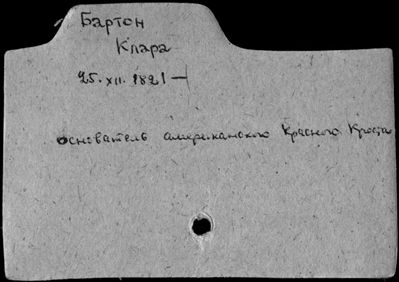 Бартон
Клара
25.XII.1821 —
основатель американского Красного Креста